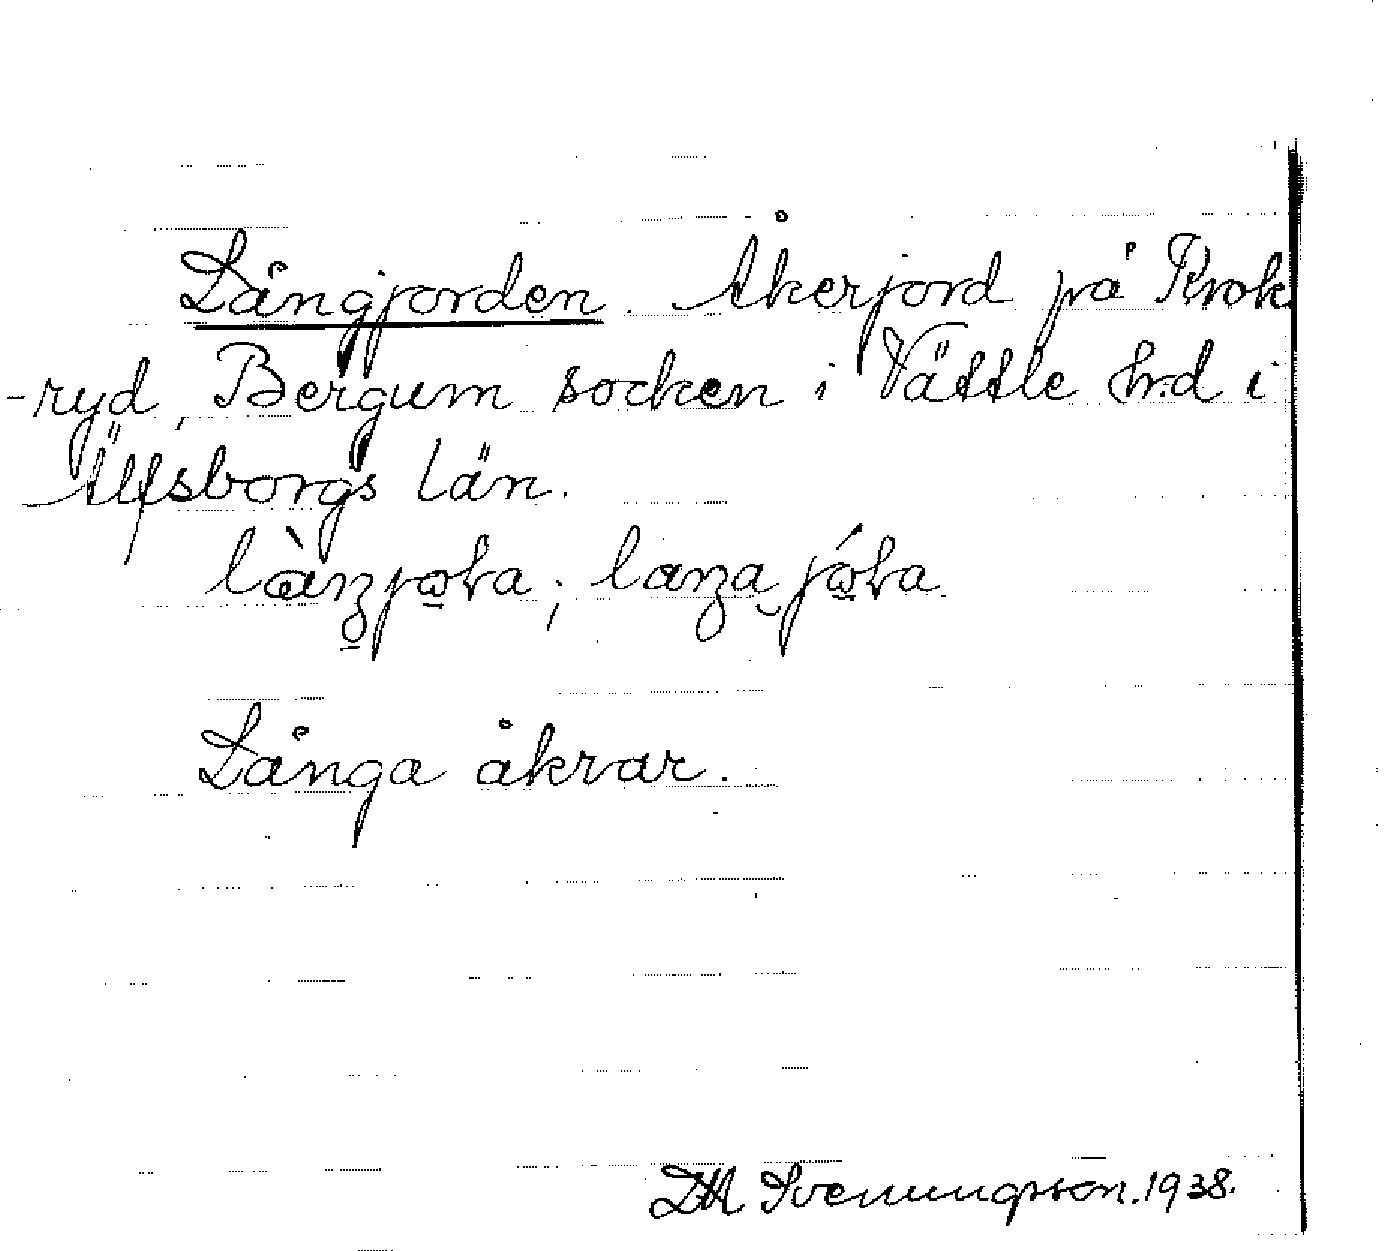 Långjorden. Åkerjord på Krok
-ryd, Bergum socken i Vättle hrd i
Älfsborgs län.
Långa åkrar.
Svenungsson. 1938.